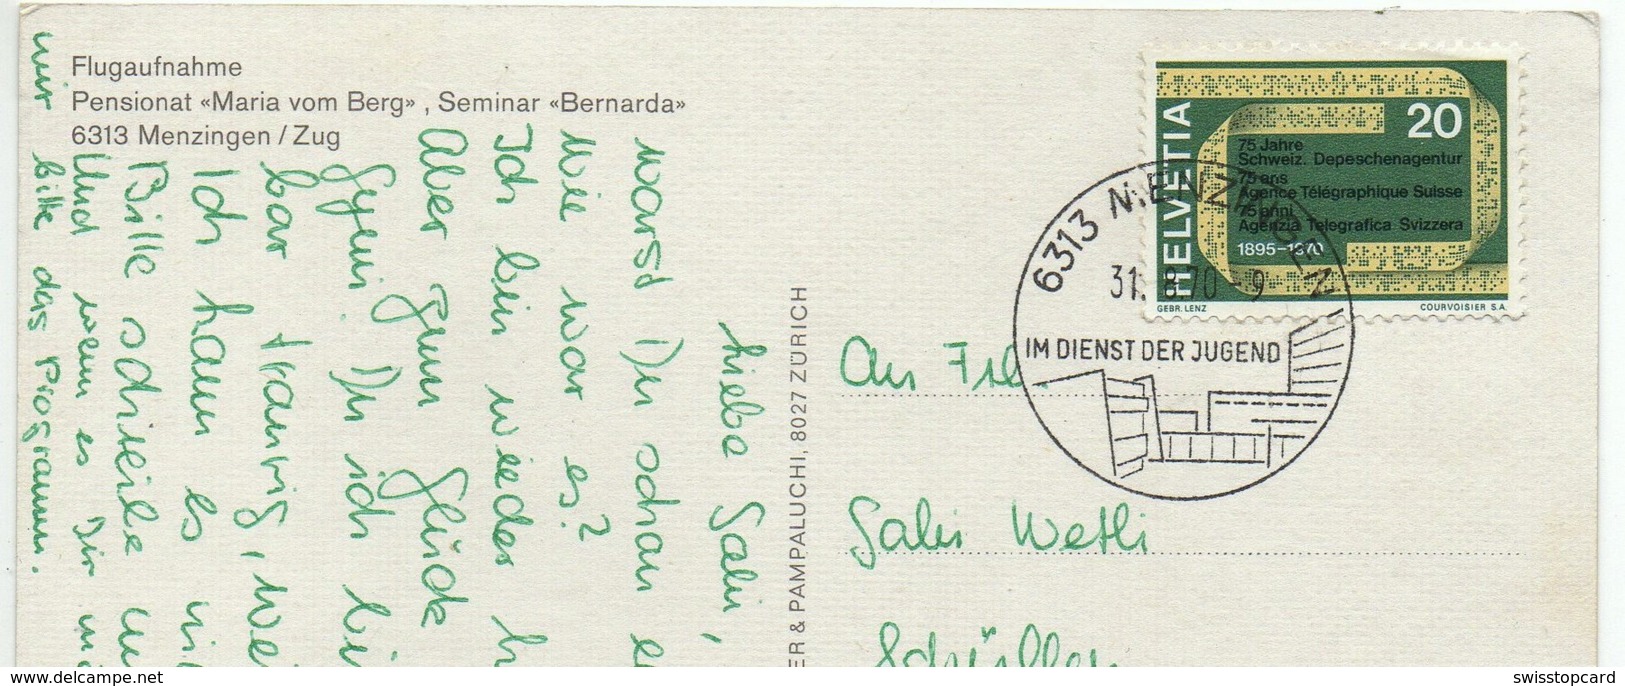 Flugaufnahme
Pensionat «Maria vom Berg», Seminar «Bernarda»
6313 Menzingen / Zug
HELVETIA
20
75 Jahre
Schweiz. Depeschenagentur
75 ans
Agence Télégraphique Suisse
75 anni
Agenzia Telegrafica Svizzera
1895–1970
GEBR. LENZ
COURVOISIER S.A.
6313 MENZINGEN
31. 8.70 - 9
IM DIENST DER JUGEND
ER & PAMPALUCHI, 8027 ZÜRICH
Liebe Gabi,
warst Du schon
Wie war es?
Ich bin wieder
Aber zum Glück
Du ich
bar traurig,
Ich kann es
Bitte schreibe
Und wenn es Dir
mir bitte das Programm.
An
Gabi Wetli
Delcampe.net
swisstopcard